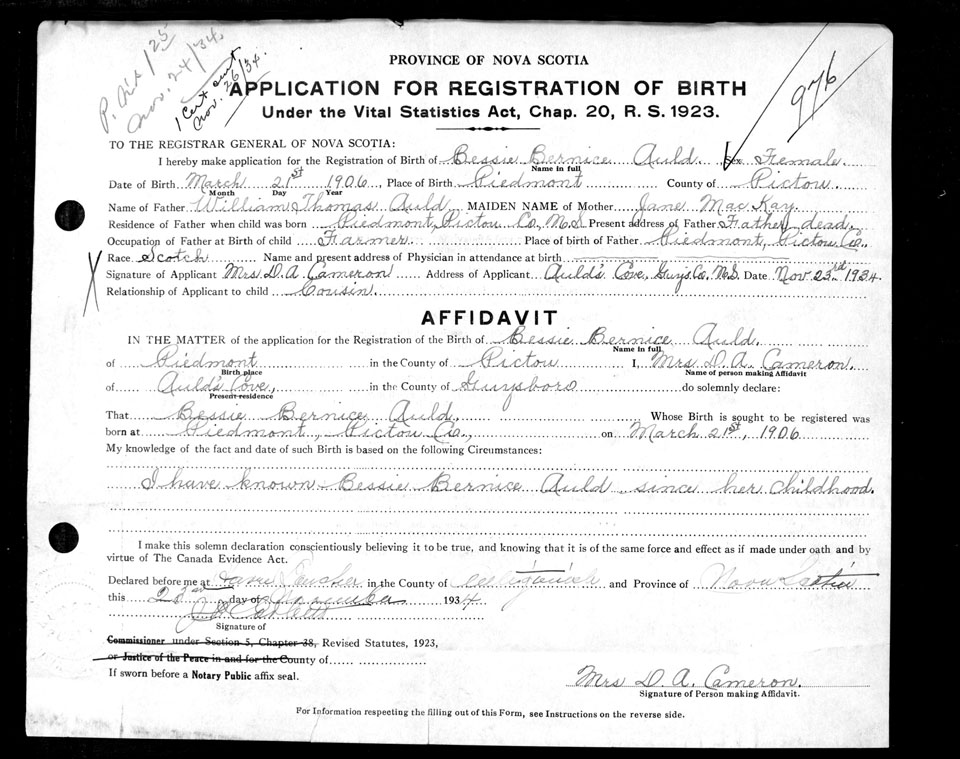 Nov. 24/34.
1 Cert sent
Nov. 26/34.
976
PROVINCE OF NOVA SCOTIA
APPLICATION FOR REGISTRATION OF BIRTH
Under the Vital Statistics Act, Chap. 20, R. S. 1923.
TO THE REGISTRAR GENERAL OF NOVA SCOTIA:
I hereby make application for the Registration of Birth of Bessie Bernice Auld Sex Female.
Name in full
Date of Birth March 21st 1906, Place of Birth Piedmont County of Pictou
Month Day Year
Name of Father William Thomas Auld MAIDEN NAME of Mother Jane MacKay.
Residence of Father when child was born Piedmont, Pictou Co., N.S Present address of Father Father dead.
Occupation of Father at Birth of child Farmer Place of birth of Father Piedmont, Pictou Co.,
Race Scotch Name and present address of Physician in attendance at birth
Signature of Applicant Mrs D. A. Cameron Address of Applicant Auld's Cove, Guys Co. N.S Date Nov 23rd 1934.
Relationship of Applicant to child Cousin.
AFFIDAVIT
IN THE MATTER of the application for the Registration of the Birth of Bessie Bernice Auld.
Name in full
of Piedmont in the County of Pictou I, Mrs D. A. Cameron.
Birth place Name of person making Affidavit
of Auld's Cove, in the County of Guysboro do solemnly declare:
Present residence
That Bessie Bernice Auld. Whose Birth is sought to be registered was
born at Piedmont, Pictou Co., on March 21st, 1906
My knowledge of the fact and date of such Birth is based on the following Circumstances:
I have known Bessie Bernice Auld since her childhood.
I make this solemn declaration conscientiously believing it to be true, and knowing that it is of the same force and effect as if made under oath and by
virtue of The Canada Evidence Act.
Declared before me at in the County of Antigonish and Province of Nova Scotia
this 23rd day of November 1934
Signature of
Commissioner under Section 5, Chapter 38, Revised Statutes, 1923,
or Justice of the Peace in and for the County of
If sworn before a Notary Public affix seal.
Mrs D. A. Cameron.
Signature of Person making Affidavit.
For Information respecting the filling out of this Form, see Instructions on the reverse side.